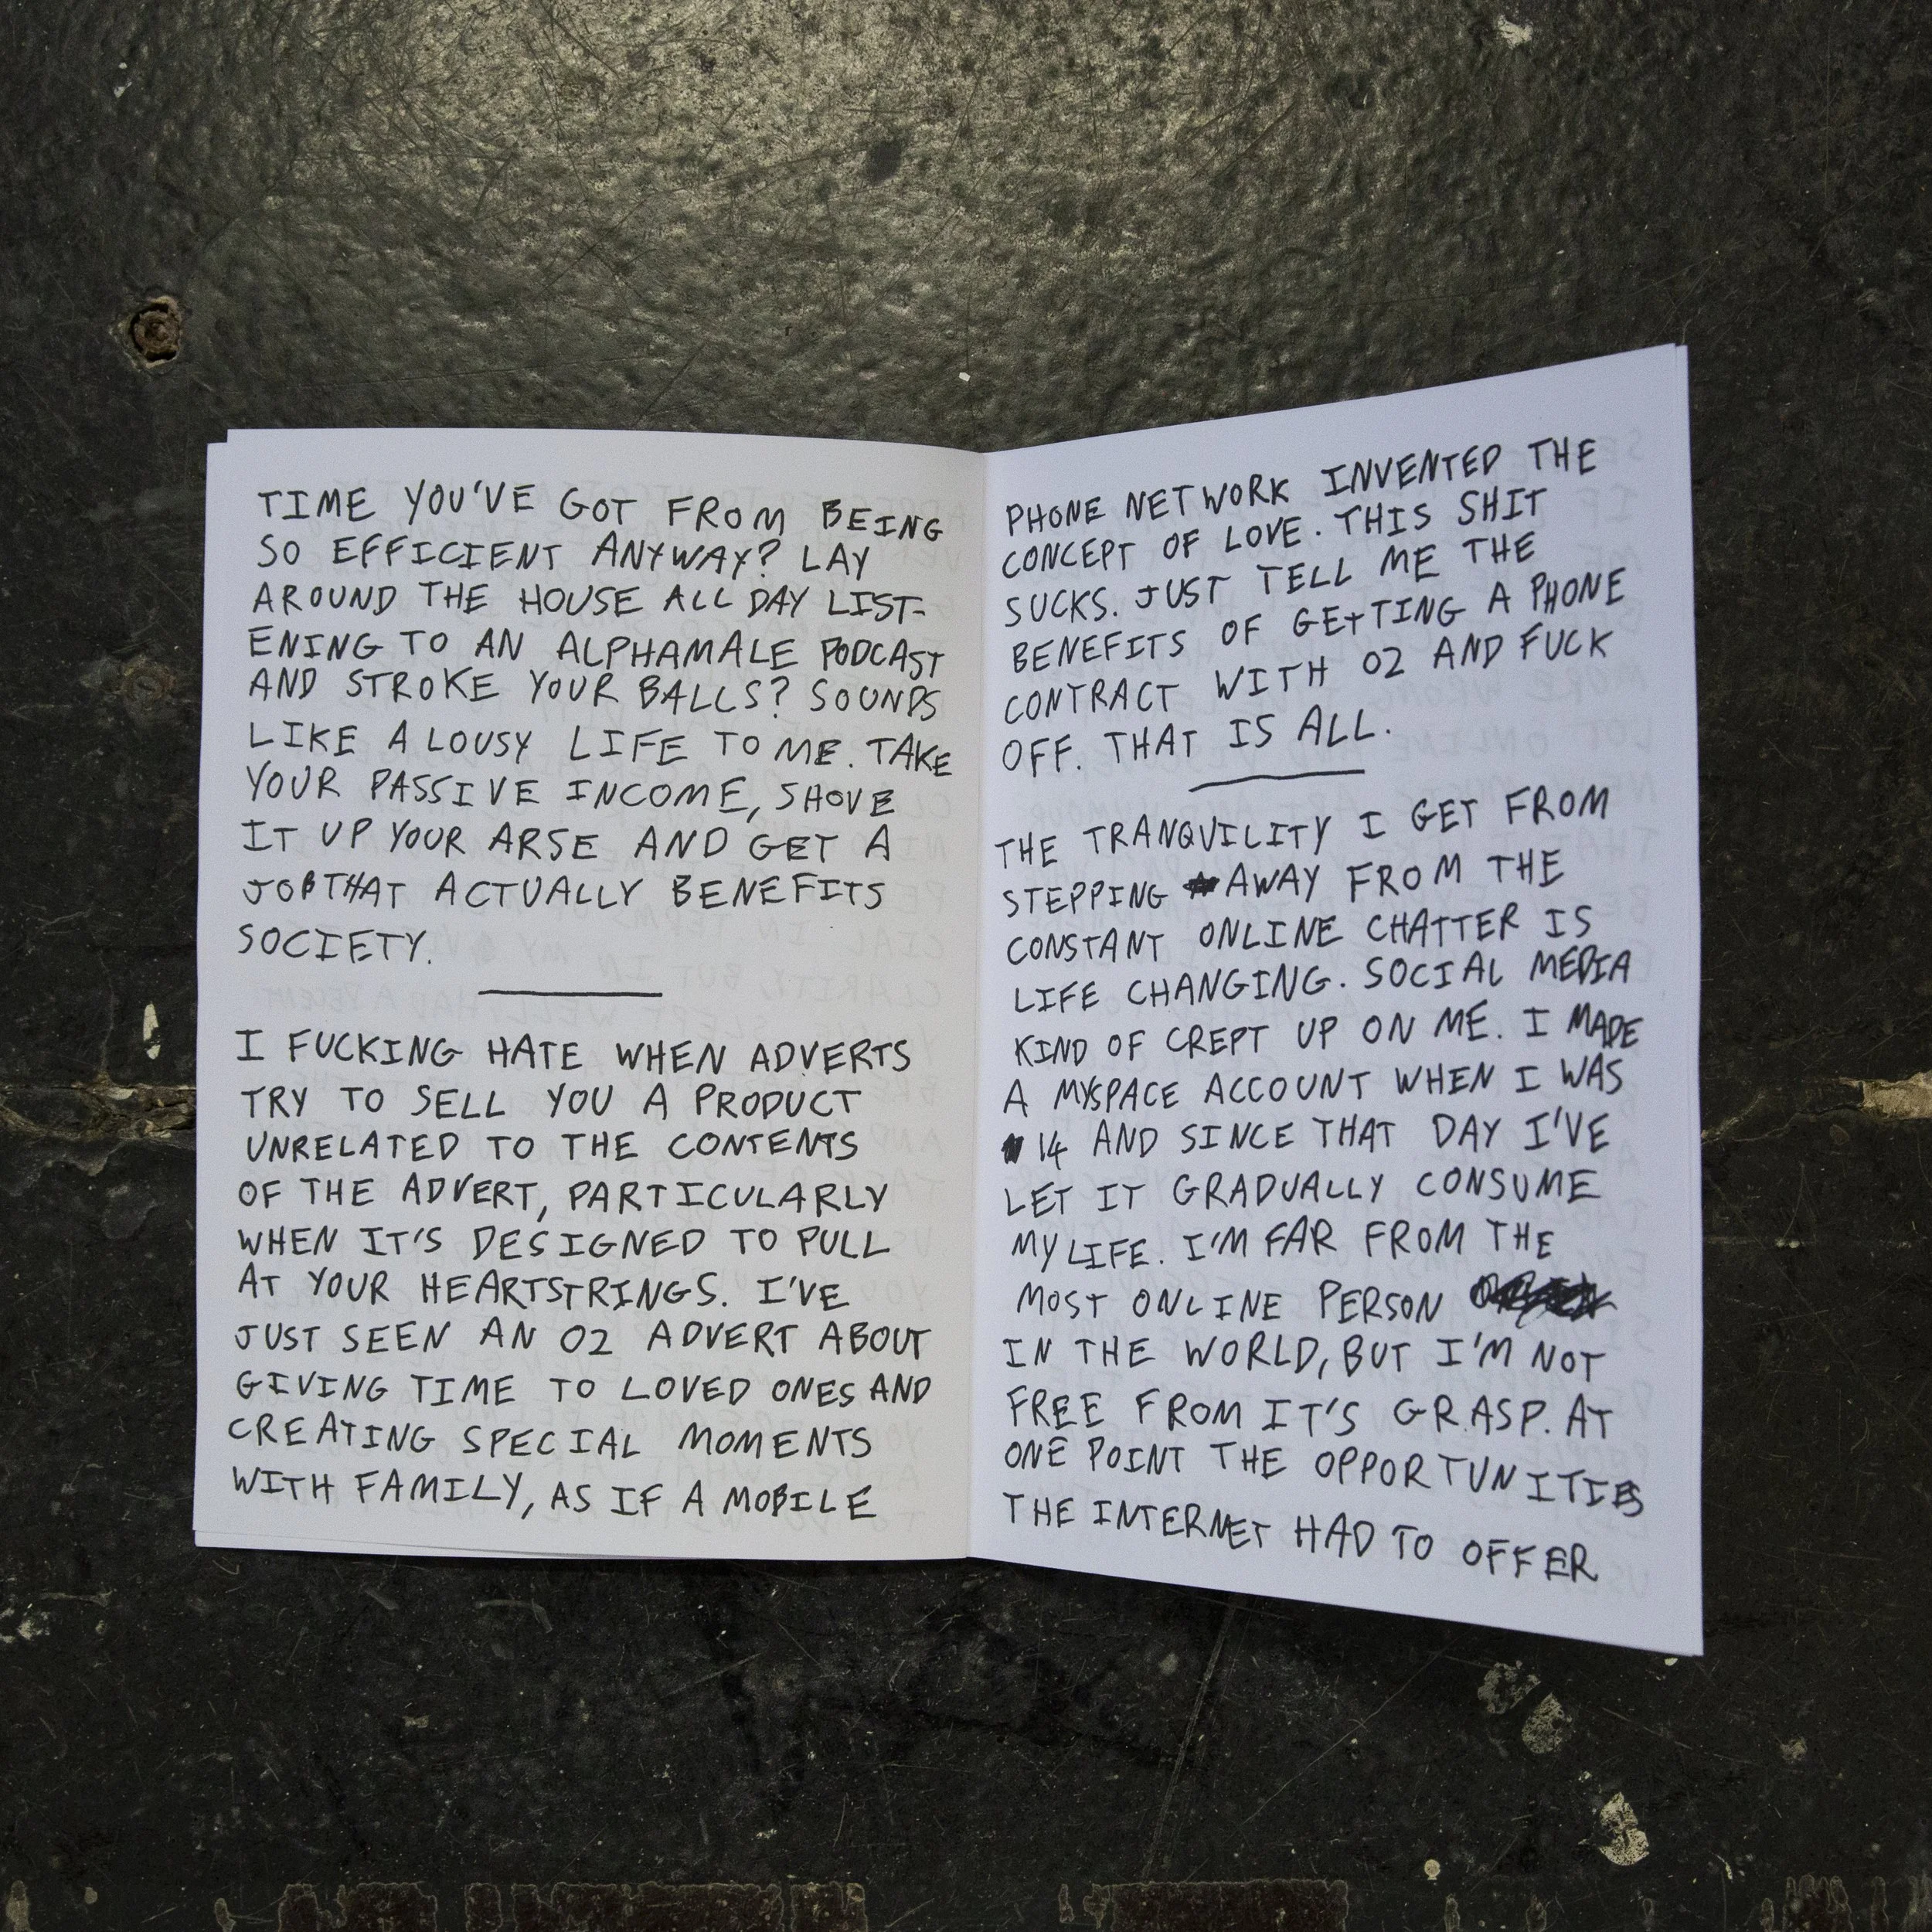 TIME YOU'VE GOT FROM BEING
SO EFFICIENT ANYWAY? LAY
AROUND THE HOUSE ALL DAY LIST-
ENING TO AN ALPHAMALE PODCAST
AND STROKE YOUR BALLS? SOUNDS
LIKE A LOUSY LIFE TO ME. TAKE
YOUR PASSIVE INCOME, SHOVE
IT UP YOUR ARSE AND GET A
JOB THAT ACTUALLY BENEFITS
SOCIETY.
I FUCKING HATE WHEN ADVERTS
TRY TO SELL YOU A PRODUCT
UNRELATED TO THE CONTENTS
OF THE ADVERT, PARTICULARLY
WHEN IT'S DESIGNED TO PULL
AT YOUR HEARTSTRINGS. I'VE
JUST SEEN AN O2 ADVERT ABOUT
GIVING TIME TO LOVED ONES AND
CREATING SPECIAL MOMENTS
WITH FAMILY, AS IF A MOBILE
PHONE NETWORK INVENTED THE
CONCEPT OF LOVE. THIS SHIT
SUCKS. JUST TELL ME THE
BENEFITS OF GETTING A PHONE
CONTRACT WITH O2 AND FUCK
OFF. THAT IS ALL.
THE TRANQUILITY I GET FROM
STEPPING AWAY FROM THE
CONSTANT ONLINE CHATTER IS
LIFE CHANGING. SOCIAL MEDIA
KIND OF CREPT UP ON ME. I MADE
A MYSPACE ACCOUNT WHEN I WAS
14 AND SINCE THAT DAY I'VE
LET IT GRADUALLY CONSUME
MY LIFE. I'M FAR FROM THE
MOST ONLINE PERSON
IN THE WORLD, BUT I'M NOT
FREE FROM IT'S GRASP. AT
ONE POINT THE OPPORTUNITIES
THE INTERNET HAD TO OFFER